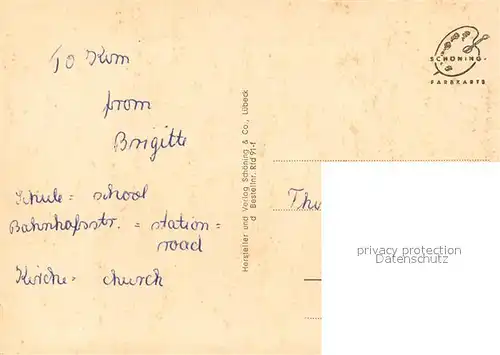 To Kim
from
Brigitte
Schule = school
Bahnhofsstr. = station =
road
Kirche = church
Hersteller und Verlag Schöning & Co., Lübeck
d Bestellnr. Rfd 91-f
SCHÖNING-
FARBKARTE
privacy protection
Datenschutz